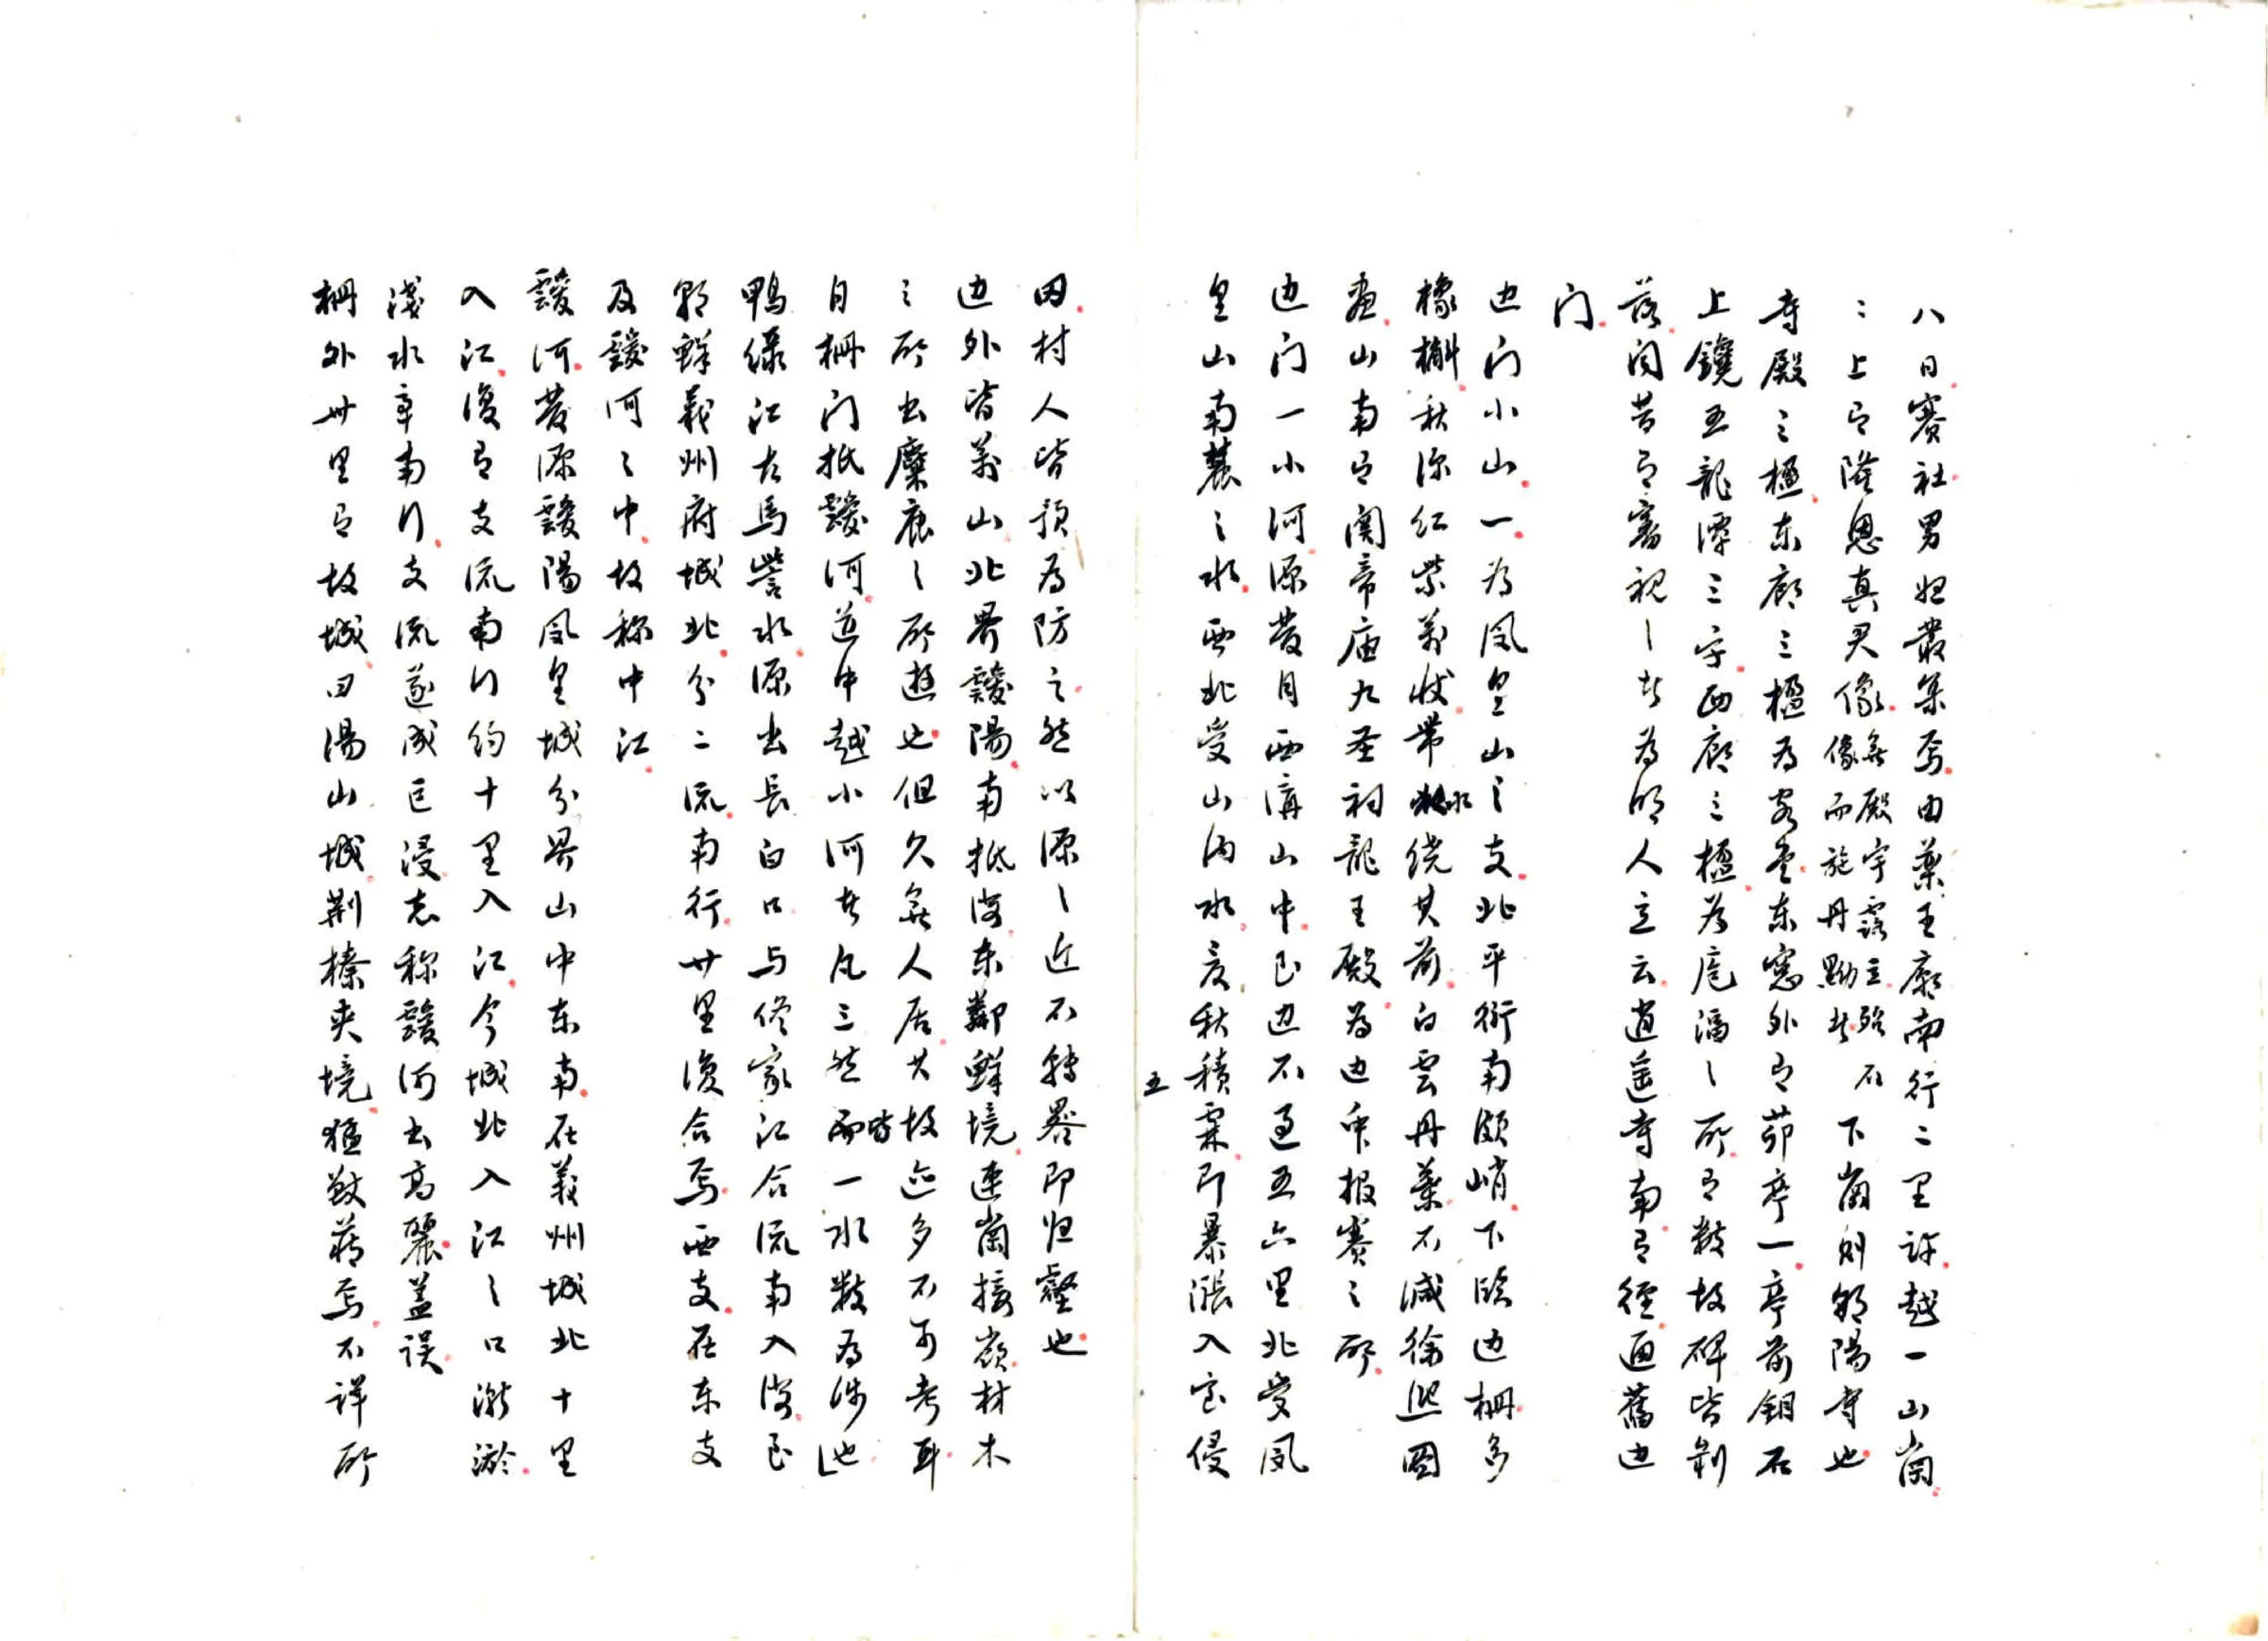 八日賽社男妇叢集焉由藥王廟南行二里許越一山崗
:上有隆恩真君像無殿宇露立臨石像而施丹黝者下崗則朝陽寺也
寺殿三楹东廊三楹为客堂东窓外有茆亭一亭前鉏石
上鐫五龍潭三字西廊三楹为庖湢之所有数故碑皆剝
落间昔有審視之者为明人立云逍遥寺南有徑通舊边
门
边门小山一为凤皇山之支北平衍南頗峭下临边柵多
橡槲秋深红紫萬状带水绕其前白雲丹葉不减徐熙圖
画山南有関帝庙九圣祠龍王殿为边氓报赛之所
边门一小河源發自西溝山中已边不过五六里北受凤
皇山南麓之水西北受山内水夏秋積霖即暴漲入室侵
五
田村人皆預为防之然以源之近不轉晷即归壑也
边外皆萬山北界靉陽南抵海东鄰鮮境連崗接嶺材木
之所出麋鹿之所遊也但久無人居其故迹多不可考耳
自柵门抵靉河道中越小河者凡三然皆一水数为涉也
鴨绿江古馬訾水源出長白口与佟家江合流南入海已
朝鮮義州府城北分二流南行廿里復合焉西支在东支
及靉河之中故称中江
靉河發源靉陽凤皇城分界山中东南在義州城北十里
入江復有支流南行约十里入江今城北入江之口漸淤
淺水率南行支流遂成巨浸志称靉河出高麗盖误
柵外卅里有故城曰湯山城荆榛夾境猛獸藏焉不详所